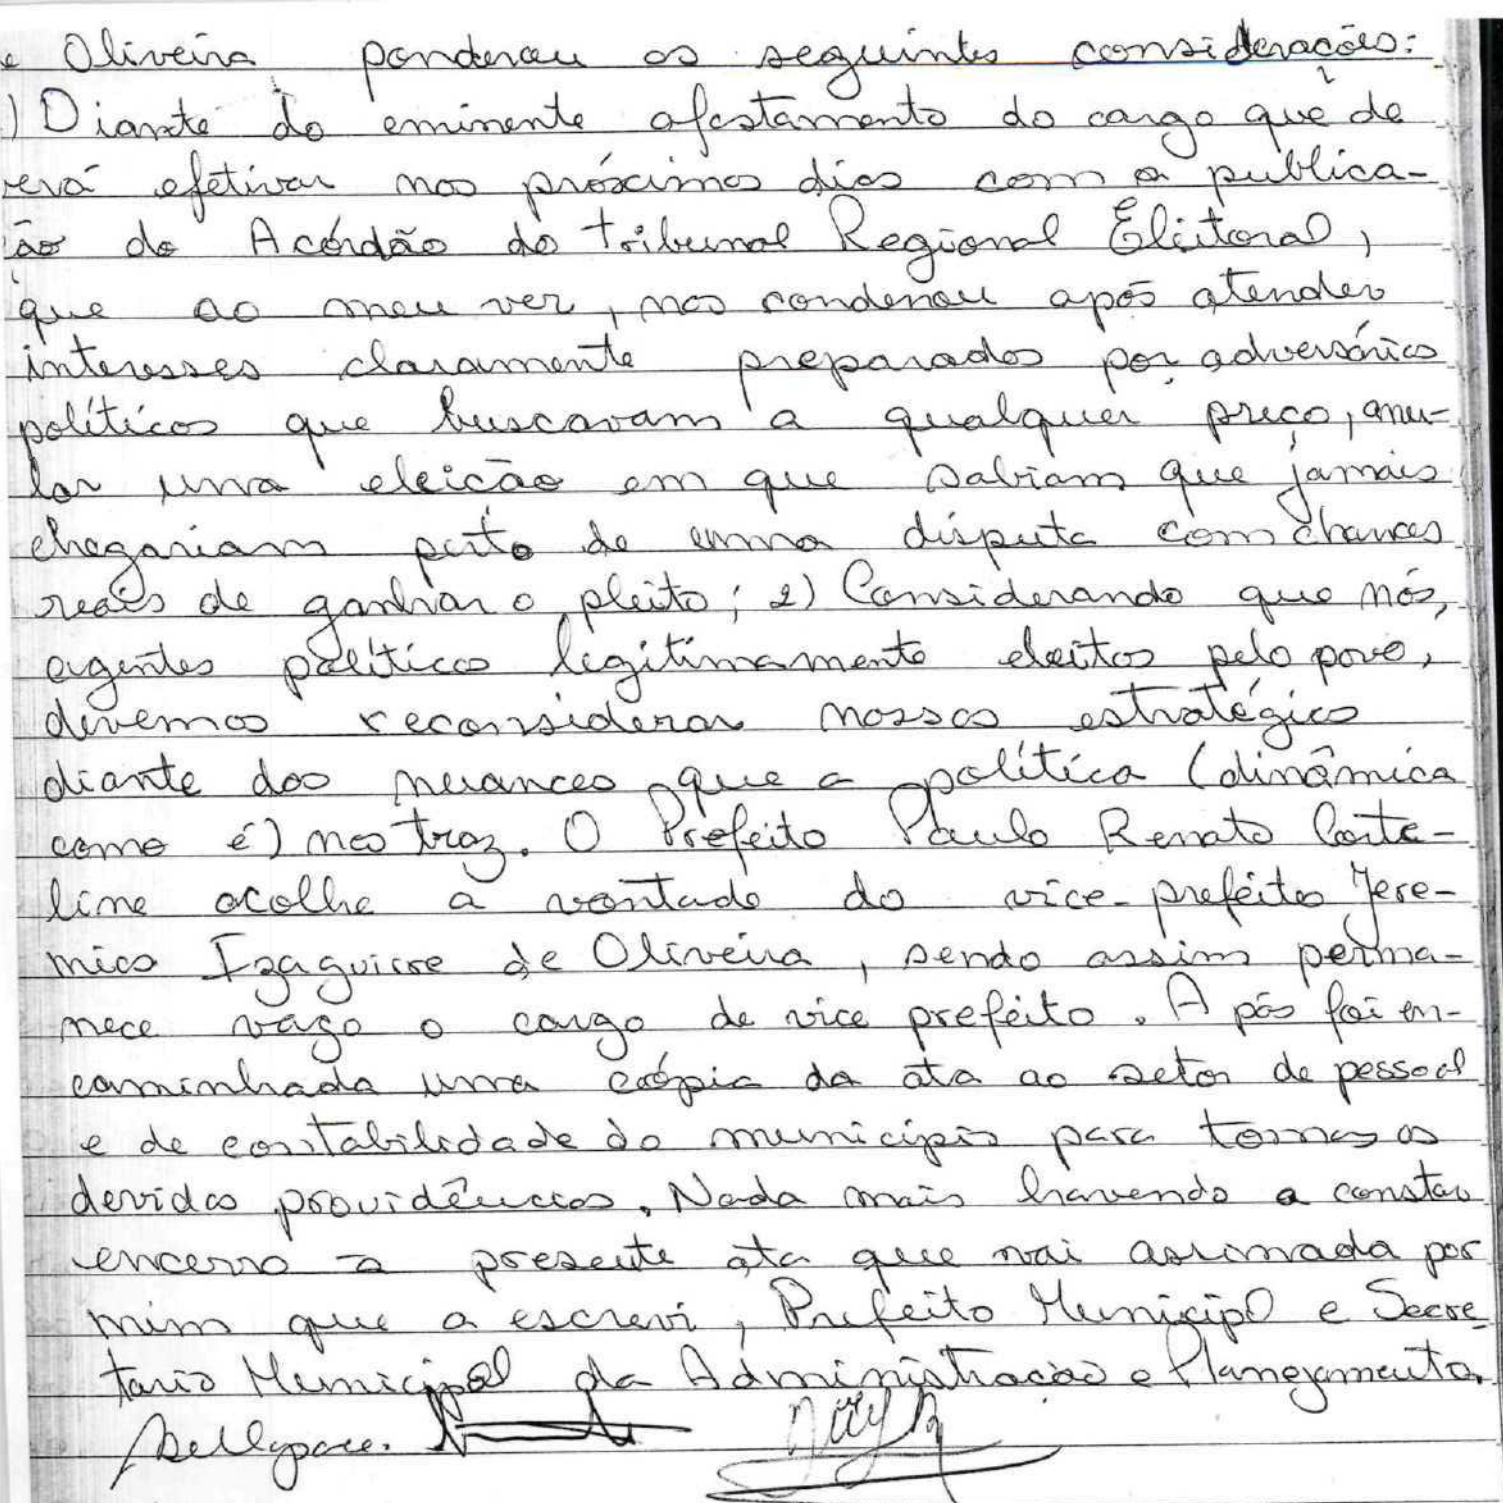 e Oliveira ponderou as seguintes considerações:
) Diante do eminente afastamento do cargo que de
verá efetivar nos próximos dias com a publica-
ção do Acórdão do Tribunal Regional Eleitoral,
que ao meu ver, nos condenou após atender
interesses claramente preparados por adversários
políticos que buscavam a qualquer preço, anu-
lar uma eleição em que sabiam que jamais
chegariam perto de uma disputa com chances
reais de ganhar o pleito; 2) Considerando que nós,
agentes políticos legitimamente eleitos pelo povo,
devemos reconsiderar nossas estratégias
diante das nuances que a política (dinâmica
como é) nos traz. O Prefeito Paulo Renato Corte-
line acolhe a vontade do vice-prefeito Jere-
mias Izaguirre de Oliveira, sendo assim perma-
nece vago o cargo de vice prefeito. Após foi en-
caminhada uma cópia da ata ao setor de pessoal
e de contabilidade do município para tomar as
devidas providências. Nada mais havendo a constar
encerro a presente ata que vai assinada por
mim que a escrevi, Prefeito Municipal e Secre
tario Municipal da Administração e Planejamento.